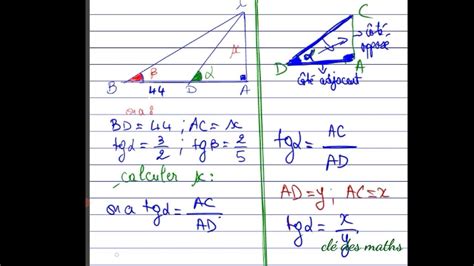 C
x
β
α
B
44
D
A
on a :
BD = 44 ; AC = x
tgα = 3/2 ; tgβ = 2/5
calculer x :
on a tgα = AC/AD
C
côté opposé
α
D
A
côté adjacent
tgα = AC/AD
AD = y ; AC = x
tgα = x/y
clé des maths